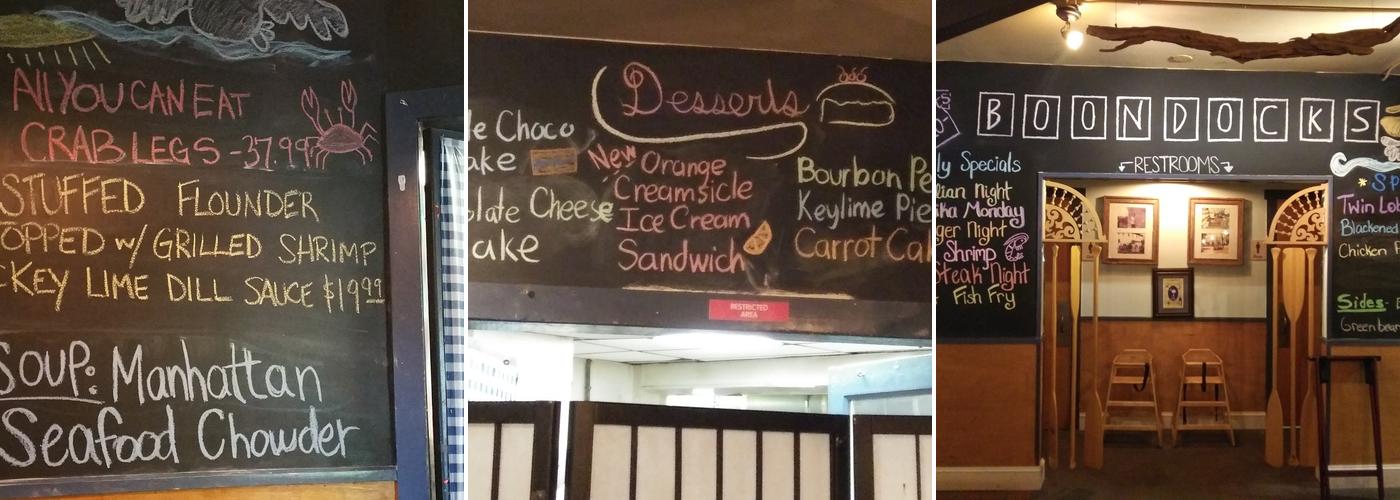 All YOU CAN EAT
CRAB LEGS -37.99
STUFFED FLOUNDER
TOPPED w/ GRILLED SHRIMP
KEY LIME DILL SAUCE $19.99
SOUP: Manhattan
Seafood Chowder
Desserts
le Choco
ake
late Cheese
ake
New Orange
Creamsicle
Ice Cream
Sandwich
Bourbon Pe
Keylime Pie
Carrot Cak
RESTRICTED
AREA
BOONDOCKS
RESTROOMS
ly Specials
lian Night
ka Monday
ger Night
Shrimp
Steak Night
Fish Fry
SP
Twin Lob
Blackened
Chicken
Sides
Green bean